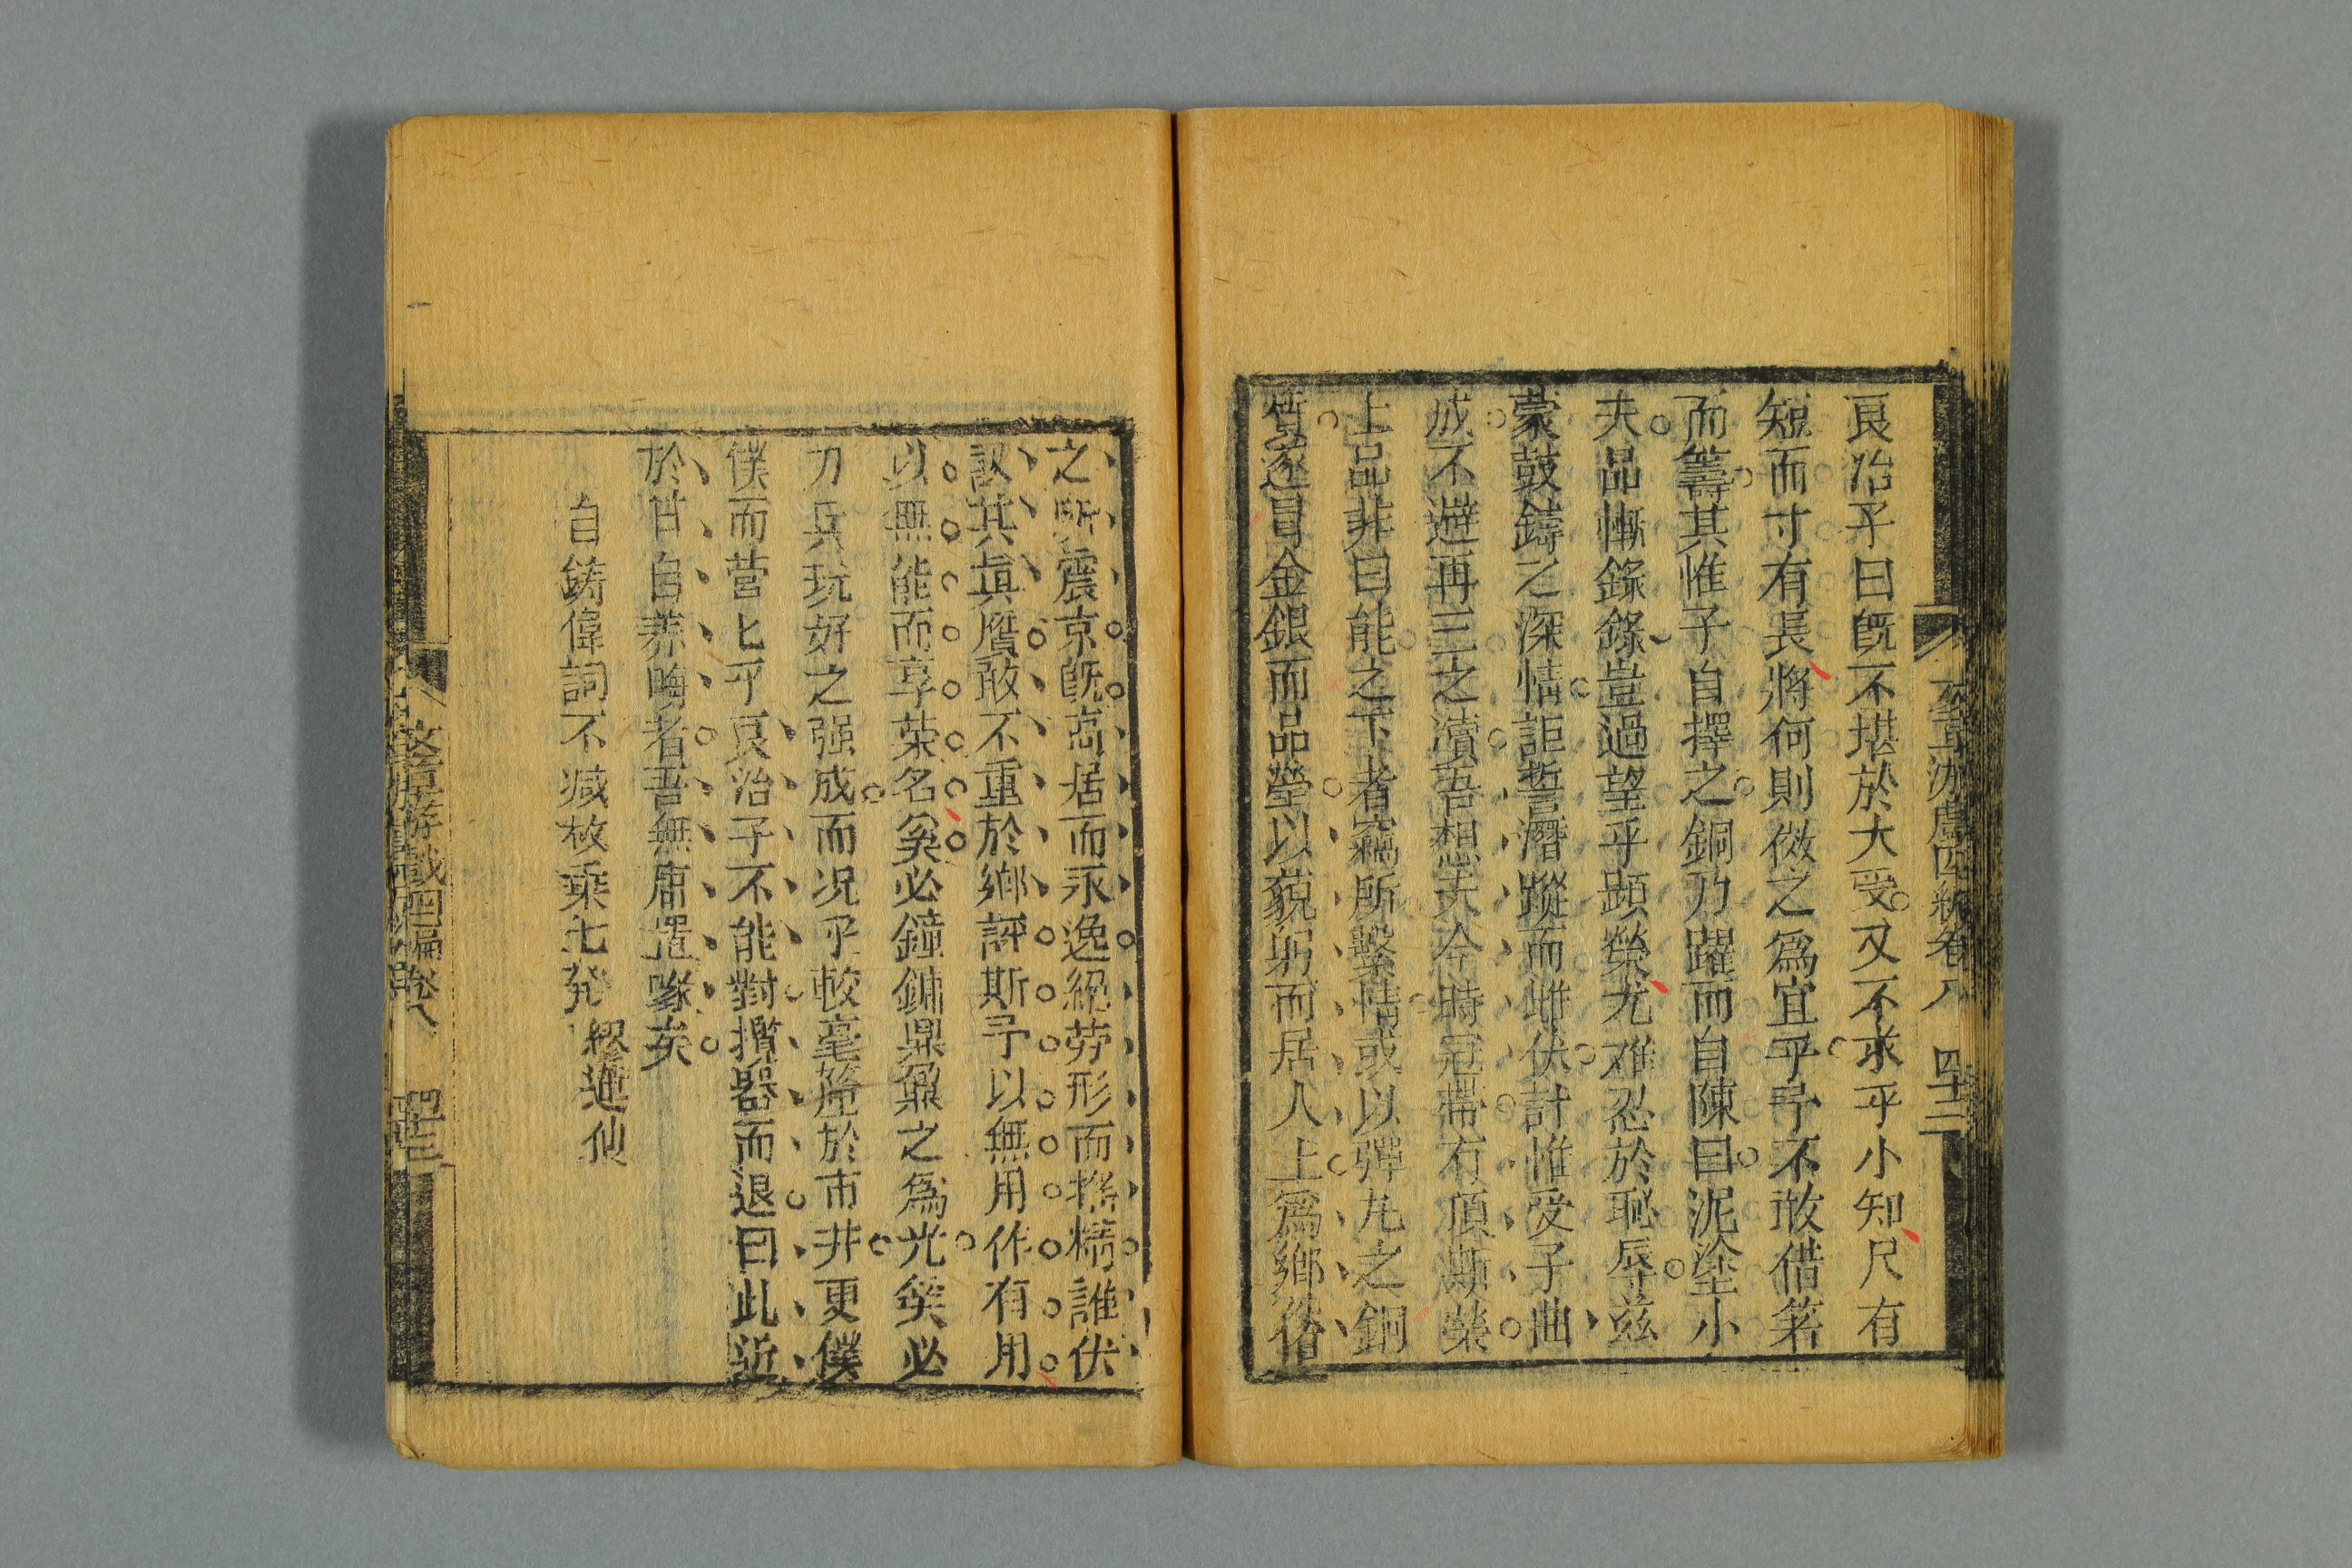 良冶乎曰旣不堪於大受又不求乎小知尺有
短而寸有長將何則傚之爲宜乎予不敢借箸
而籌其惟子自擇之銅乃躍而自陳曰泥塗小
夫品慚錄錄豈過望乎顯榮尤难忍於恥辱茲
蒙鼓鑄之深情詎誓潛蹤而雌伏計惟受子曲
成不避再三之瀆吾想夫今時冠帶有頂顯榮
上品非曰能之下者竊所繫情或以彈丸之銅
質遂冒金銀而品瑩以藐躬而居人上爲鄉俗
之所震京旣高居而永逸絕劳形而搖精誰伏
訳其眞贋敢不重於鄉評斯予以無用作有用
以無能而享荣名矣必鐘鏞鼎鼐之爲光矣必
刀兵玩好之强成而况乎較毫釐於市井更僕
僕而营匕乎良治子不能對攬器而退曰此近
於甘自养晦者吾無庸置喙矣
自鋳偉詞不减枚乘七発 繆蓮仙
文章游戲四編卷八 四十二
文章游戯四編卷八 四十三